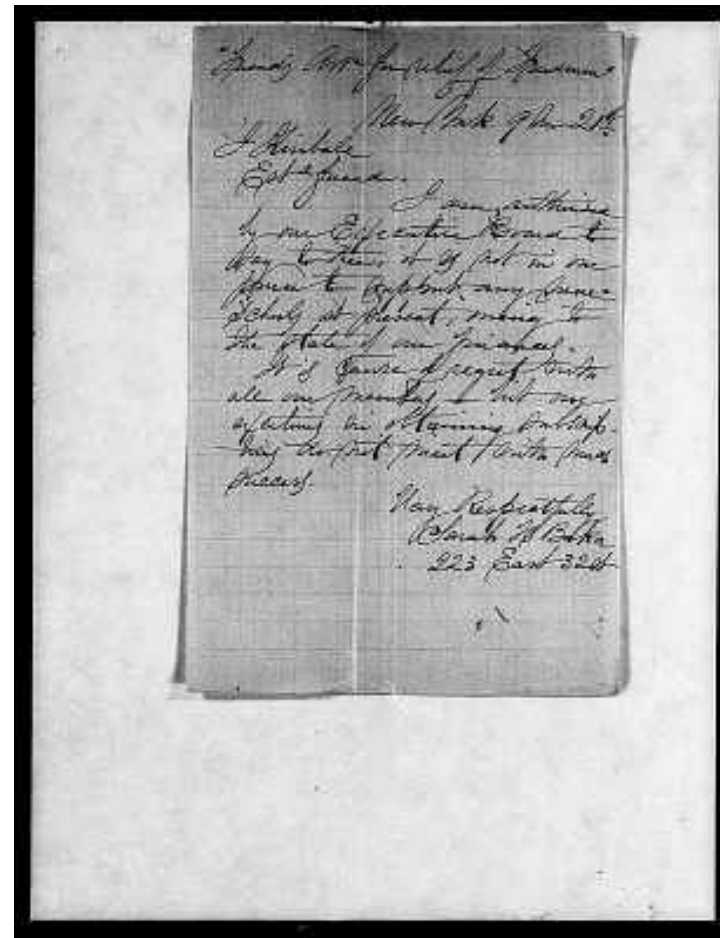 Friends Assn for relief of Freedmen
of
New York 9 mo 28th
J Kimbale
Estd friend.
I am authorized
by our Executive Board to
Say to thee, it is not in our
power to Support any
Schools at present, owing to
the State of our finances.
It is cause of regret with
all our members - but our
in obtaining
do not meet with much
Success.
Very Respectfully
Sarah H
223 East 32 St